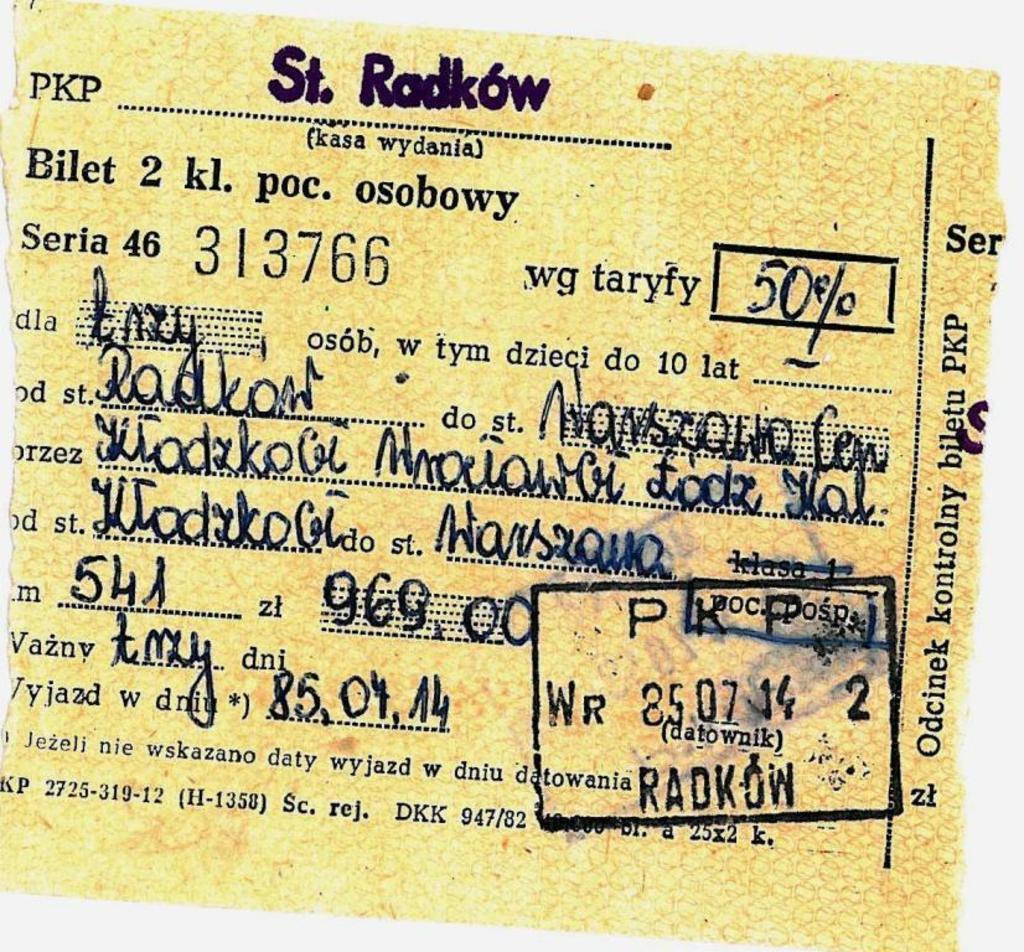 PKP St. Radków
(kasa wydania)
Bilet 2 kl. poc. osobowy
Seria 46 313766 wg taryfy 50%
dla trzy, osób, w tym dzieci do 10 lat
od st. Radków do st. Warszawa Cen
przez Kłodzko Gł Wrocław Gł Łódź Kal.
od st. Kłodzko Gł do st. Warszawa klasa 1
m 541 zł 969.00 poc. pośp.
Ważny trzy dni
Wyjazd w dniu *) 85.07.14
) Jeżeli nie wskazano daty wyjazd w dniu datowania
KP 2725-319-12 (H-1358) Śc. rej. DKK 947/82 bl. a 25x2 k.
P K P
WR 85 07 14 2
(datownik)
RADKÓW
Odcinek kontrolny biletu PKP
Ser
S
zł